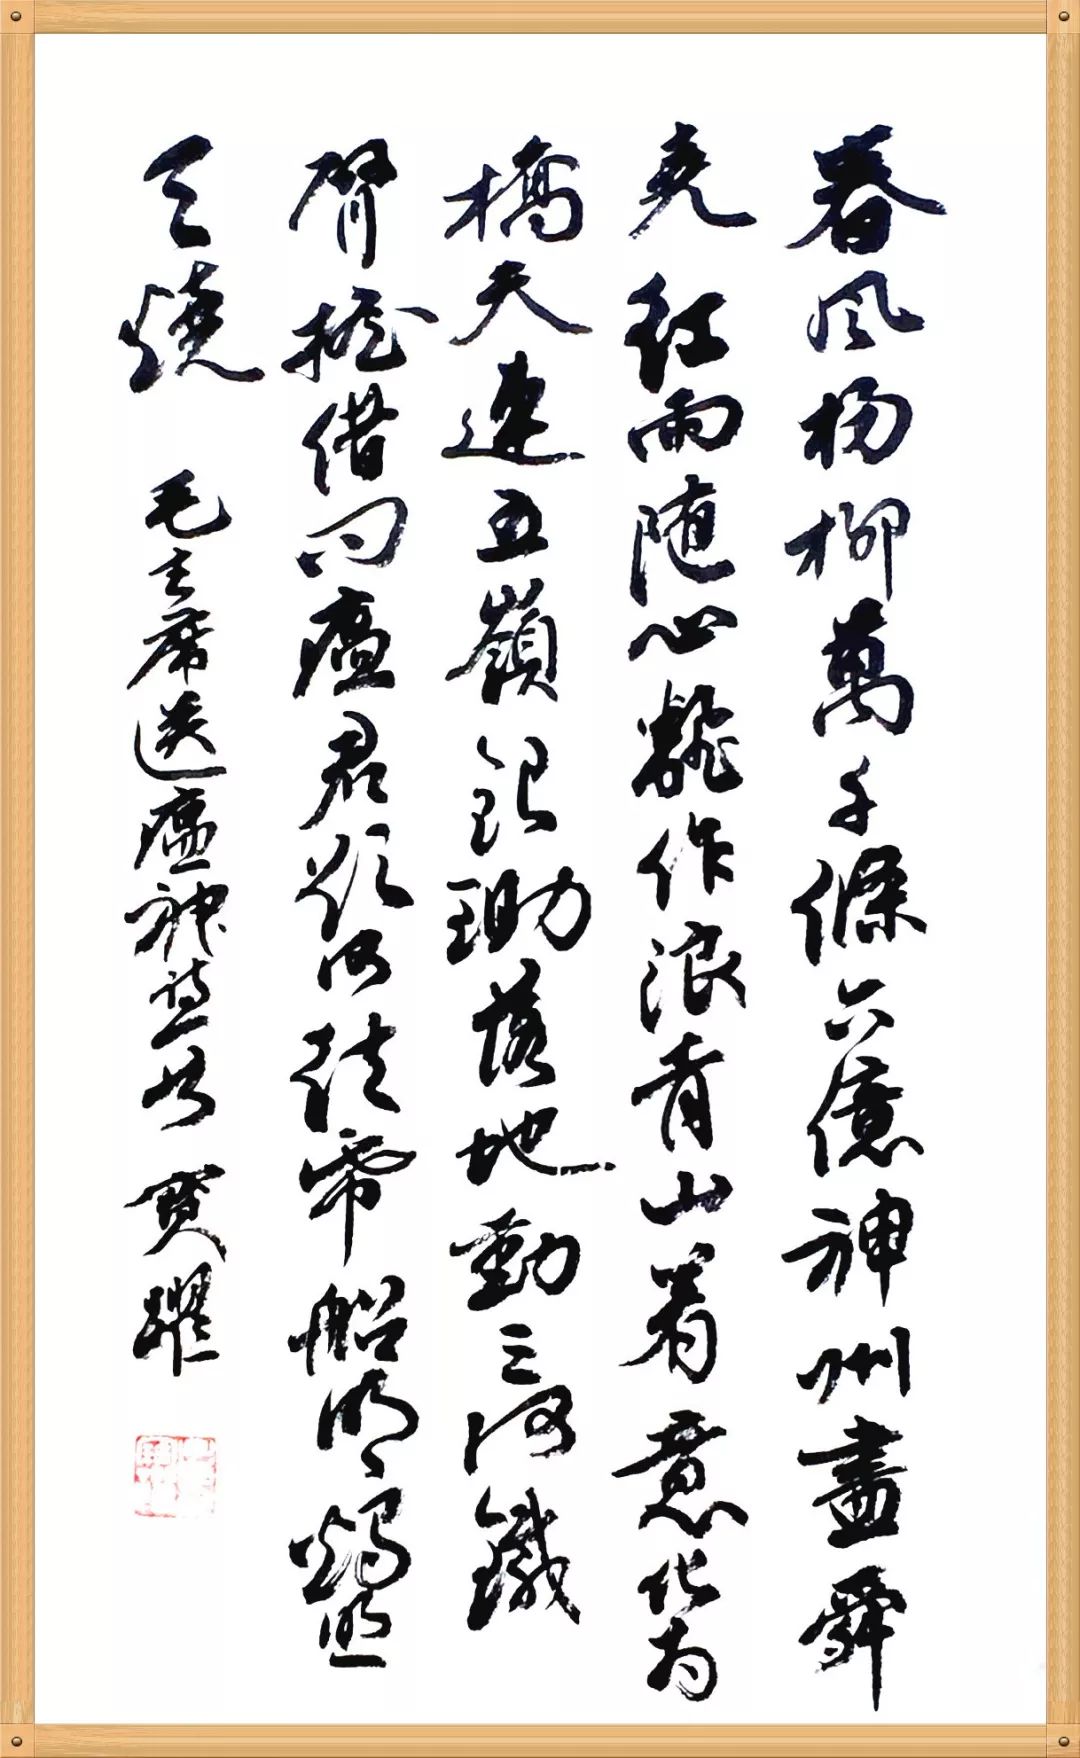 春风杨柳萬千條六億神州盡舜
尧红雨随心翻作浪青山着意化为
橋天連五嶺銀鋤落地動三河鐵
臂摇借问瘟君欲何往帋船明燭照
天燒 毛主席送瘟神诗一首 躍